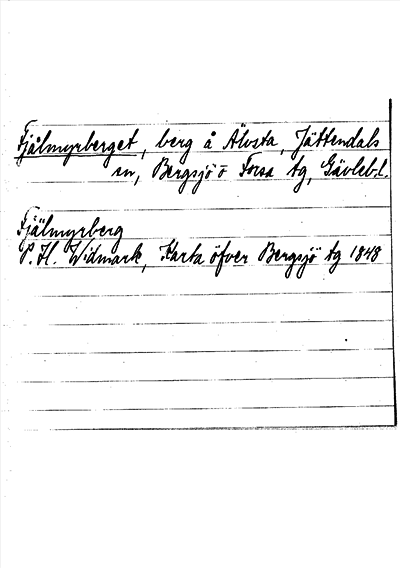 Fjälmyrberget, berg å Älvsta, Jättendals
sn, Bergsjö o Forsa tg, Gävleb.l.
Fjälmyrberg
P. H. Widmark, Karta öfver Bergsjö tg 1848